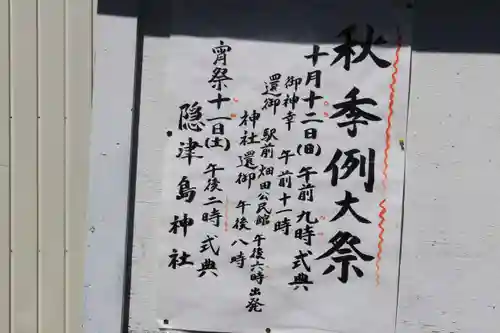 秋季例大祭
十月十二日(日)午前九時式典
御神幸 午前十一時
還御 駅前畑田公民館 午後六時出発
神社還御 午後八時
宵祭十一日(土)午後二時式典
隠津島神社